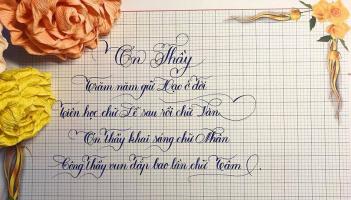 Ơn Thầy
Trăm năm giữ Đạo ở đời
Tiên học chữ Lễ sau rồi chữ Văn
Ơn thầy khai sáng chữ Nhân
Công thầy vun đắp bao lần chữ Tâm.